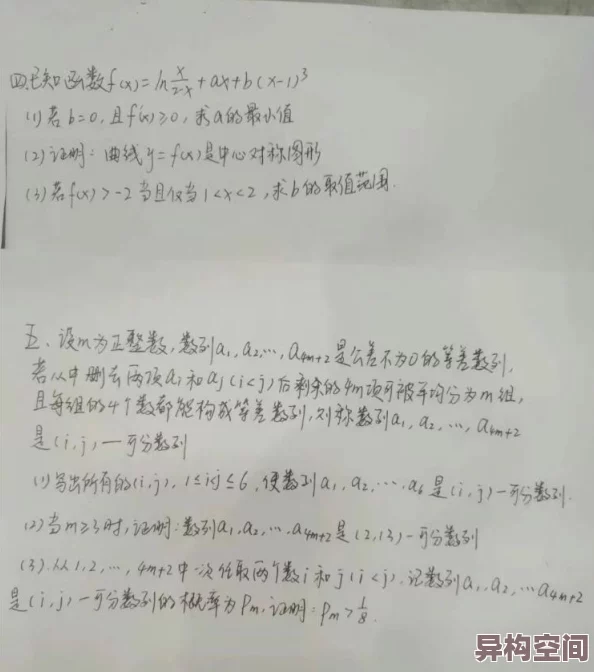 四.已知函数f(x)=ln x/(2-x)+ax+b(x-1)³
(1)若b=0,且f'(x)≥0,求a的最小值
(2)证明:曲线y=f(x)是中心对称图形
(3)若f(x)>-2当且仅当1<x<2,求b的取值范围.
五、设m为正整数,数列a₁,a₂,…,a₄ₘ₊₂是公差不为0的等差数列,
若从中删去两项aᵢ和aⱼ(i<j)后剩余的4m项可被平均分为m组,
且每组的4个数都能构成等差数列,则称数列a₁,a₂,…,a₄ₘ₊₂
是(i,j)一可分数列
(1)写出所有的(i,j),1≤i<j≤6,使数列a₁,a₂,…,a₆是(i,j)一可分数列.
(2)当m≥3时,证明:数列a₁,a₂,…,a₄ₘ₊₂是(2,13)一可分数列
(3).从1,2,…,4m+2中一次任取两个数i和j(i<j).记数列a₁,a₂,…a₄ₘ₊₂
是(i,j)一可分数列的概率为Pₘ.证明:Pₘ>1/8.
异构空间